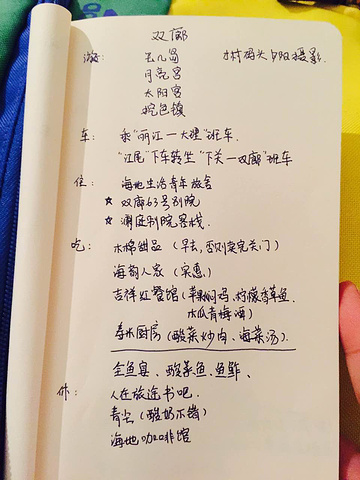 双廊
游: 玉几岛 村码头夕阳摄影.
月亮宫
太阳宫
挖色镇
车: 乘"丽江一大理"班车.
"江尾"下车转坐"下关一双廊"班车
住: 海地生活青年旅舍
☆ 双廊63号别院
☆ 澜庭别院客栈.
吃: 木棉甜品 (早去,否则卖完关门)
海韵人家 (实惠)
吉祥红餐馆 (苹果焖鸡、柠檬香草鱼.
木瓜青梅酒)
春水厨房 (酸菜炒肉、海菜汤).
全鱼宴、酸菜鱼、鱼鲊、
休: 人在旅途书吧.
青尖 (酸奶不错)
海地咖啡馆